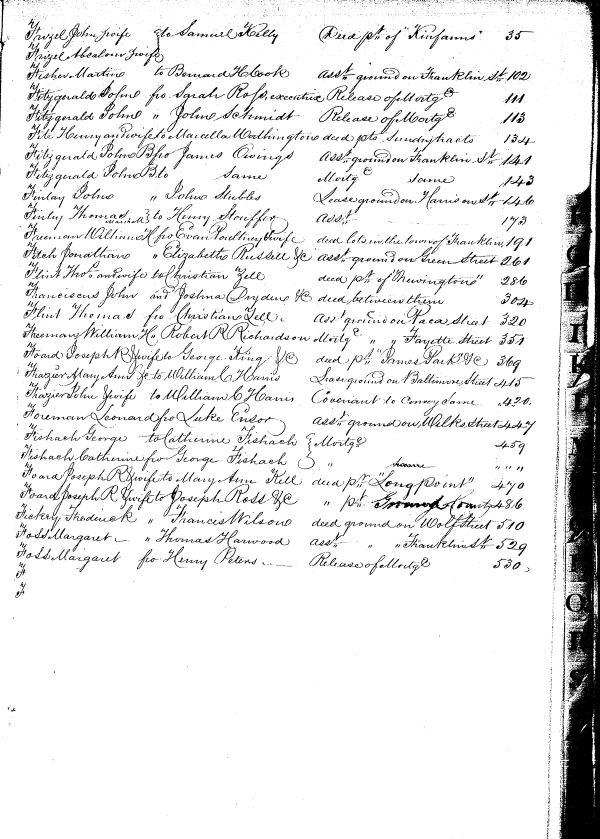 Frizel John & wife to Samuel Kelly Deed pt. of "Kinfauns" 35
Frizel Absalom & wife
Fisher Martin to Bernard H Cook asst. ground on Franklin St. 102
Fitzgerald John fro Sarah Ross, executrix Release of Mortge 111
Fitzgerald John " John Schmidt Release of Mortge 113
Fite Henry and wife to Marcella Worthington deed pts. sundry tracts 134
Fitzgerald John B fro James Owings asst. ground on Franklin St. 141
Fitzgerald John B. to same Mortge same 143
Finlay John " John Stubbs Lease ground on Harrison St. 146
Finley Thomas to Henry Stouffer asst. 173
Freeman William H fro Evan Poultney & wife deed lots in the town of Franklin, 191
Fitch Jonathan " Elizabeth Russell &c asst. ground on Green Street 261
Flint Thos. and wife to Christian Zell deed pt. of "Newington" 286
Franciscus John and Joshua Dryden &c deed between them 304
Flint Thomas fro Christian Zell. asst. ground on Paca Street 320
Freeman William H. " Robert R Richardson Mortge " " Fayette Street 351
Foard Joseph R & wife to George King &c deed pt. "James Park" &c 369
Frazier Mary Ann &c to William C Harris Lease ground on N Baltimore Street 415
Frazier John & wife to William C Harris Covenant to convey same 420.
Foreman Leonard fro Luke Ensor asst. ground on, Wilks Street 447
Fishach George to Catherine Fishach } Mortge 459
Fishach Catherine fro George Fishach } " same " " "
Foard Joseph R & wife to Mary Ann Kell deed pt. "Long point" 470
Foard Joseph R & wife to Joseph Ross &c " pt. County 486
Fickery Frederick " Francis Wilson deed ground on Wolf Street 510
Foss Margaret " Thomas Harwood asst. " " Franklin St. 529
Foss Margaret fro Henry Peters Release of Mortge 530,
F
F